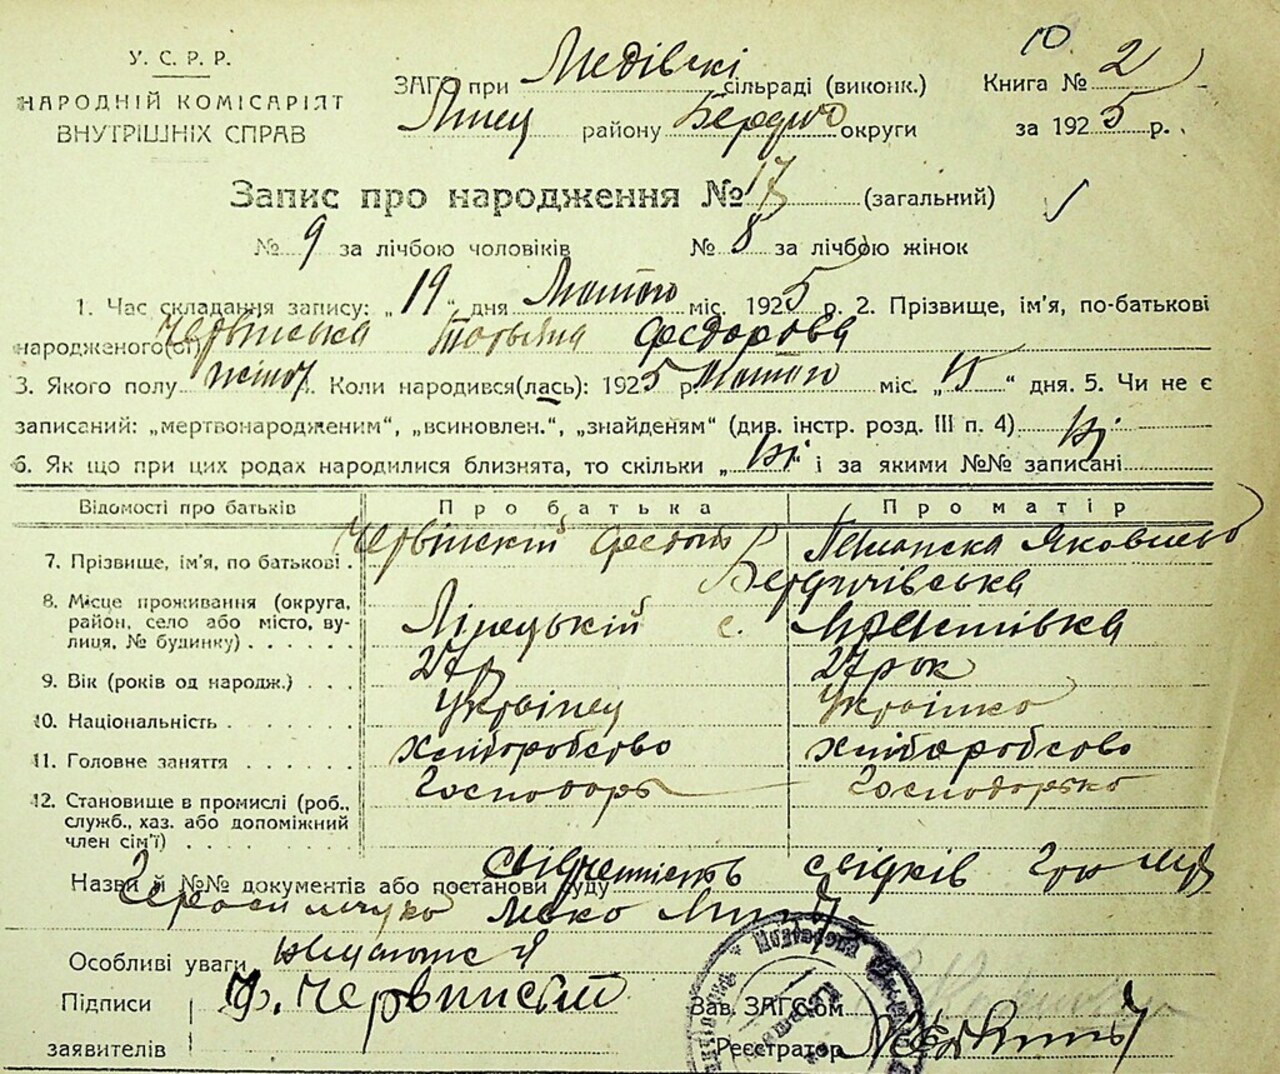 У. С. Р. Р.
НАРОДНІЙ КОМІСАРІЯТ
ВНУТРІШНІХ СПРАВ
10.
ЗАГС при Медівскі сільраді (виконк.) Книга № 2
Липец району Бердич округи за 1925 р.
Запис про народження № 17 (загальний)
№ 9 за лічбою чоловіків № 8 за лічбою жінок
1. Час складання запису: „19“ дня Лютого міс. 1925 р. 2. Прізвище, ім'я, по-батькові
народженого(ої) Червінська Татьяна Федорова
3. Якого полу жіноч. Коли народився(лась): 1925 р. Лютого міс. „15“ дня. 5. Чи не є
записаний: „мертвонародженим“, „всиновлен.“, „знайденям“ (див. інстр. розд. III п. 4) Ні
6. Як що при цих родах народилися близнята, то скільки „Ні“ і за якими №№ записані
Відомості про батьків Про батька Про матір
7. Прізвище, ім'я, по батькові Червінский Федор Яковлева
Бердичівська
8. Місце проживання (округа, район, село або місто, вулиця, № будинку) Ліпецький с.
9. Вік (років од народж.) 27 р 27 рок
10. Національність Українец Українка
11. Головне заняття хліборобство хліборобство
12. Становище в промислі (роб., служб., хаз. або допоміжний член сім'ї) Господарь Господарька
Назви й №№ документів або постанови суду свідченність свідків
Особливі уваги
Підписи Ф. Червинский Зав. ЗАГС-ом
заявителів Реєстратор